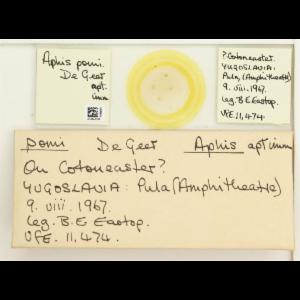 Aphis pomi.
De Geer
apt.
imm
? Cotoneaster.
YUGOSLAVIA:
Pula, (Amphitheatre)
9. viii. 1967.
leg. B.E Eastop.
VFE. 11,474
pomi De Geer Aphis apt imm
On Cotoneaster?
YUGOSLAVIA: Pula (Amphitheatre)
9. viii. 1967.
leg. B.E Eastop.
VFE. 11,474.